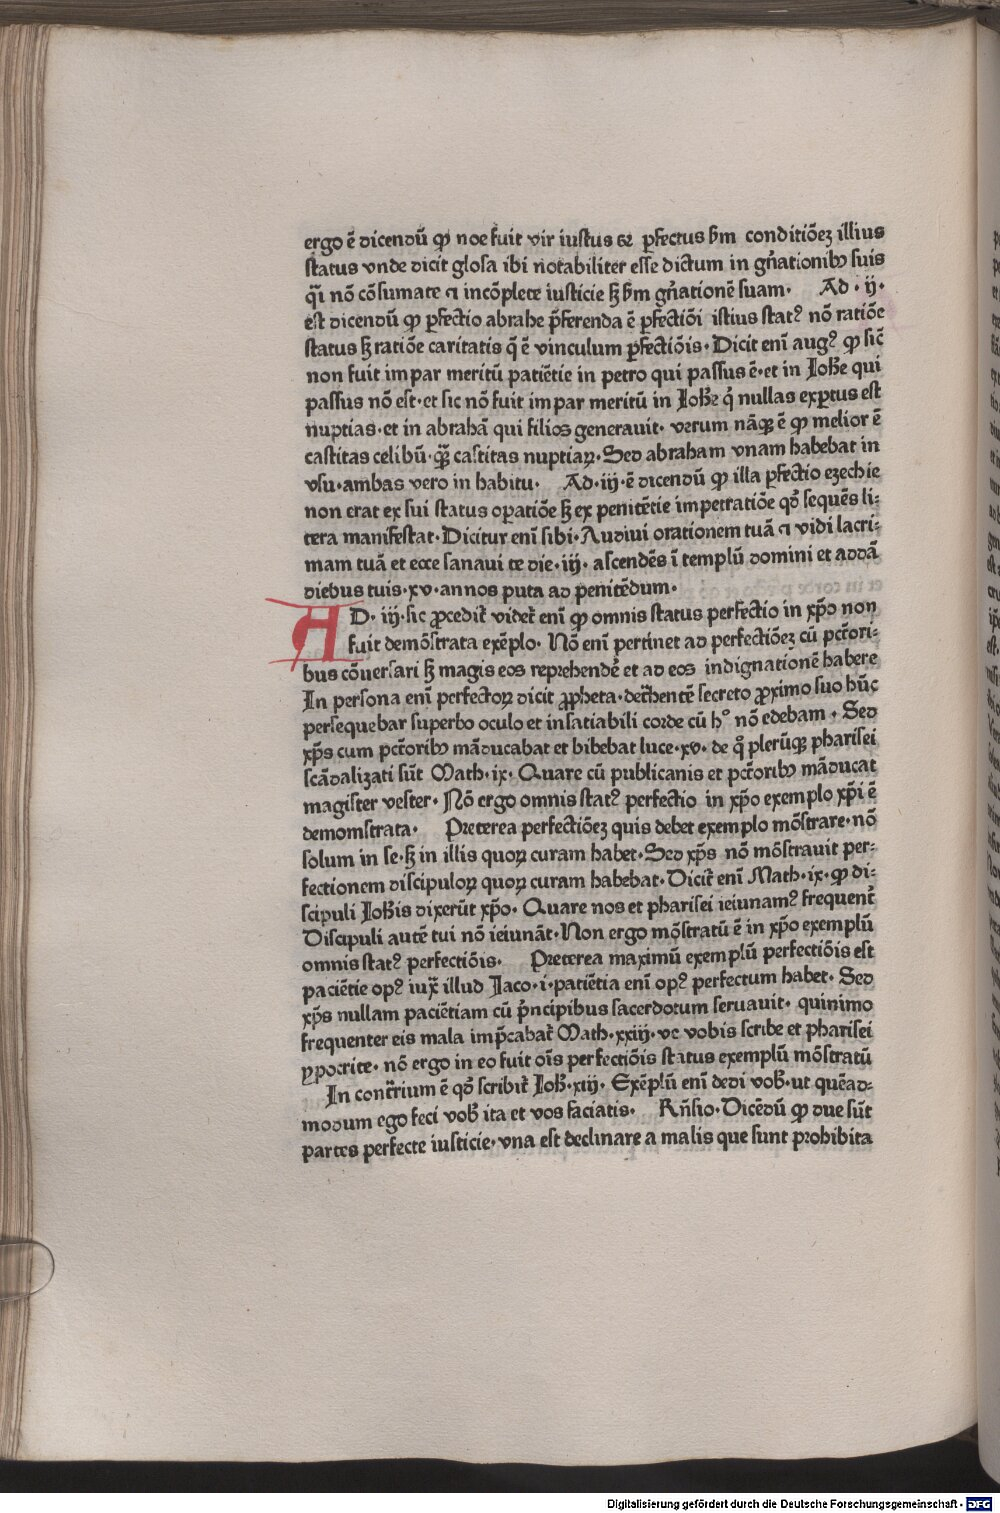 ergo ē dicendū ꝙ noe fuit vir iustus et ꝑfectus ẜm conditiōeꝫ illius
status vnde dicit glosa ibi notabiliter esse dictum in gn̄ationibꝰ suis
q̄i nō cōsumate ⁊ incōplete iusticie sꝫ ẜm gn̄ationē suam· Ad · ij·
est dicendū ꝙ ꝑfectio abrahe p̄ferenda ē ꝑfectiōi istius statꝰ nō ratiōe
status sꝫ ratiōe caritatis q̄ ē vinculum ꝑfectiōis· Dicit enī augꝰ ꝙ sic̄
non fuit impar meritū patiētie in petro qui passus ē·et in Joħe qui
passus nō est·et sic nō fuit impar meritū in Joħe q̇ nullas exꝑtus est
nuptias·et in abrahā qui filios generauit· verum nāqꝫ ē ꝙ melior ē
castitas celibū·qͣꝫ castitas nuptiaꝝ·Sed abraham vnam habebat in
vsu·ambas vero in habitu· Ad·iij·ē dicendū ꝙ illa ꝑfectio ezechie
non erat ex sui status oꝑatiōe sꝫ ex penitētie impetratiōe qd̓ sequēs li-
tera manifestat·Dicitur enī sibi·Audiui orationem tuā ⁊ vidi lacri-
mam tuā et ecce sanaui te die·iij· ascendēs ī templū domini et addā
diebus tuis·xv·annos puta ad penitēdum·
AD· iij·sic ꝓcedit̄ videt̄ enī ꝙ omnis status perfectio in xp̄o non
fuit demōstrata exēplo· Nō enī pertinet ad perfectiōeꝫ cū pctōri-
bus cōuersari sꝫ magis eos reprehendē et ad eos indignationē habere
In persona enī perfectoꝝ dicit ꝓpheta·det̄hentē secreto ꝓximo suo hūc
persequebar superbo oculo et insatiabili corde cū hᵒ nō edebam · Sed
xp̄s cum pctōribꝰ māducabat et bibebat luce·xv· de qͦ plerūqꝫ pharisei
scādalizati sūt Math·ix· Quare cū publicanis et pctōribꝰ māducat
magister vester· Nō ergo omnis statꝰ perfectio in xp̄o exemplo xp̄i ē
demomstrata· Preterea perfectiōeꝫ quis debet exemplo mōstrare·nō
solum in se·sꝫ in illis quoꝝ curam habet·Sed xp̄s nō mōstrauit per-
fectionem discipuloꝝ quoꝝ curam habebat·Dicit̄ enī Math·ix·ꝙ di-
scipuli Joħis dixerūt xp̄o· Quare nos et pharisei ieiunamꝰ frequent̄
Discipuli autē tui nō ieiunāt·Non ergo mōstratū ē in xp̄o exemplū
omnis statꝰ perfectiōis· Preterea maximū exemplū perfectiōis est
paciētie opꝰ iuxͣ illud Jaco·i·patiētia enī opꝰ perfectum habet· Sed
xp̄s nullam paciētiam cū p̄ncipibus sacerdotum seruauit· quinimo
frequenter eis mala imp̄cabat̄ Math·xxiij·ve vobis scribe et pharisei
ypocrite· nō ergo in eo fuit oīs perfectiōis status exemplū mōstratū
In contͣrium ē qd̓ scribit̄ Joħ·xiij· Exēplū enī dedi vob̄·ut quēad-
modum ego feci vob̄ ita et vos faciatis· Rn̄sio·Dicēdū ꝙ due sūt
partes perfecte iusticie·vna est declinare a malis que sunt prohibita
Digitalisierung gefördert durch die Deutsche Forschungsgemeinschaft - DFG